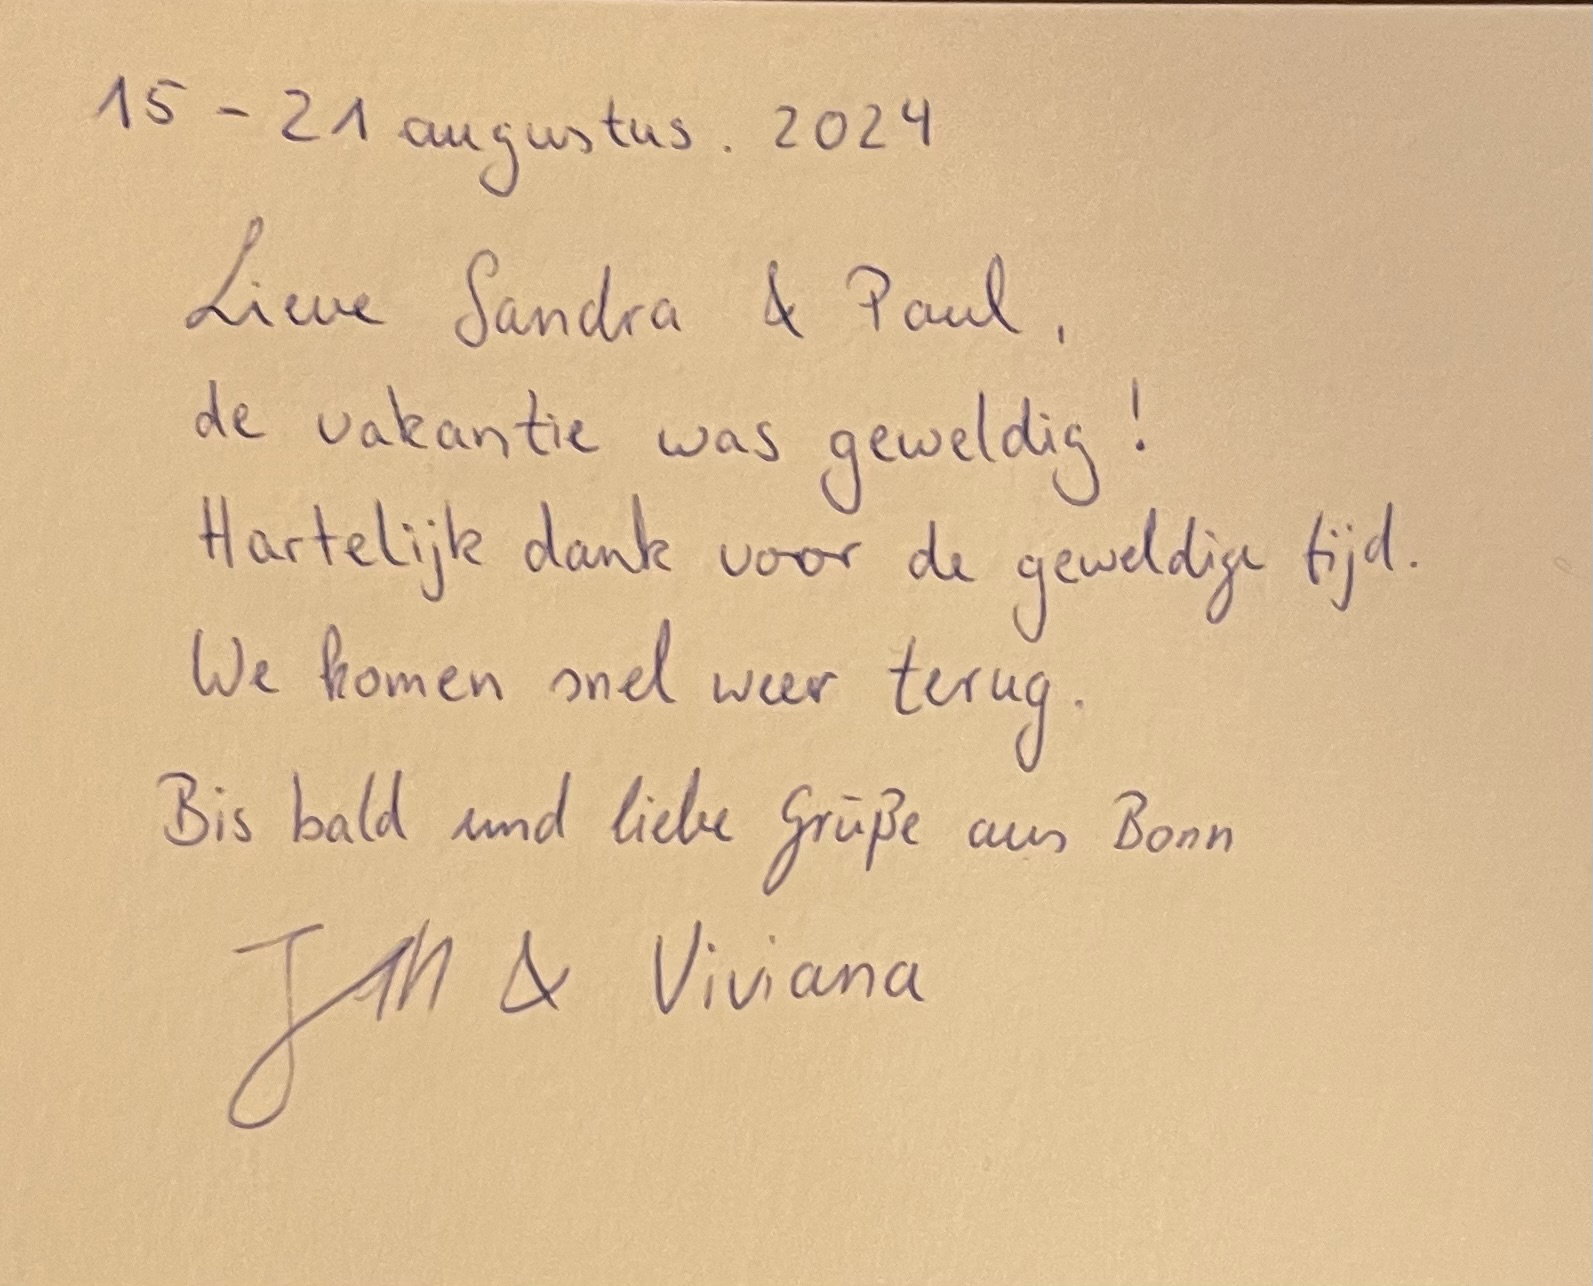 15 - 21 augustus. 2024
Lieve Sandra & Paul,
de vakantie was geweldig!
Hartelijk dank voor de geweldige tijd.
We komen snel weer terug.
Bis bald und liebe Grüße aus Bonn
& Viviana